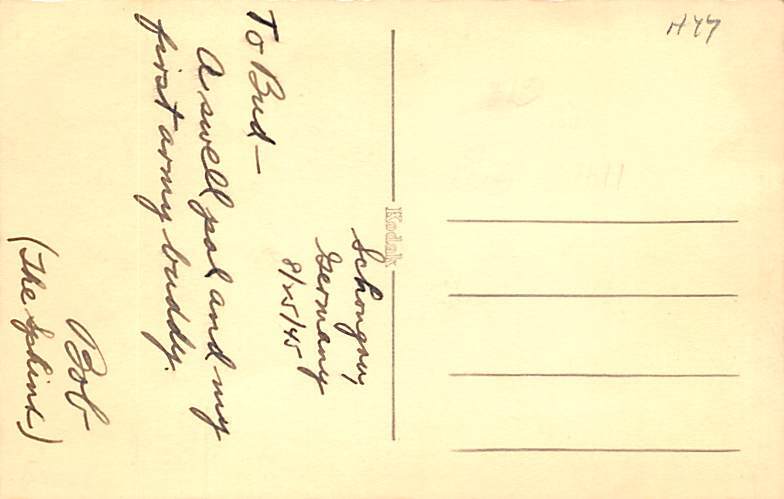 Schongau,
Germany
8/25/45
To Bud—
A swell pal and my
first army buddy.
Bob
(The Sphinx)
Kodak